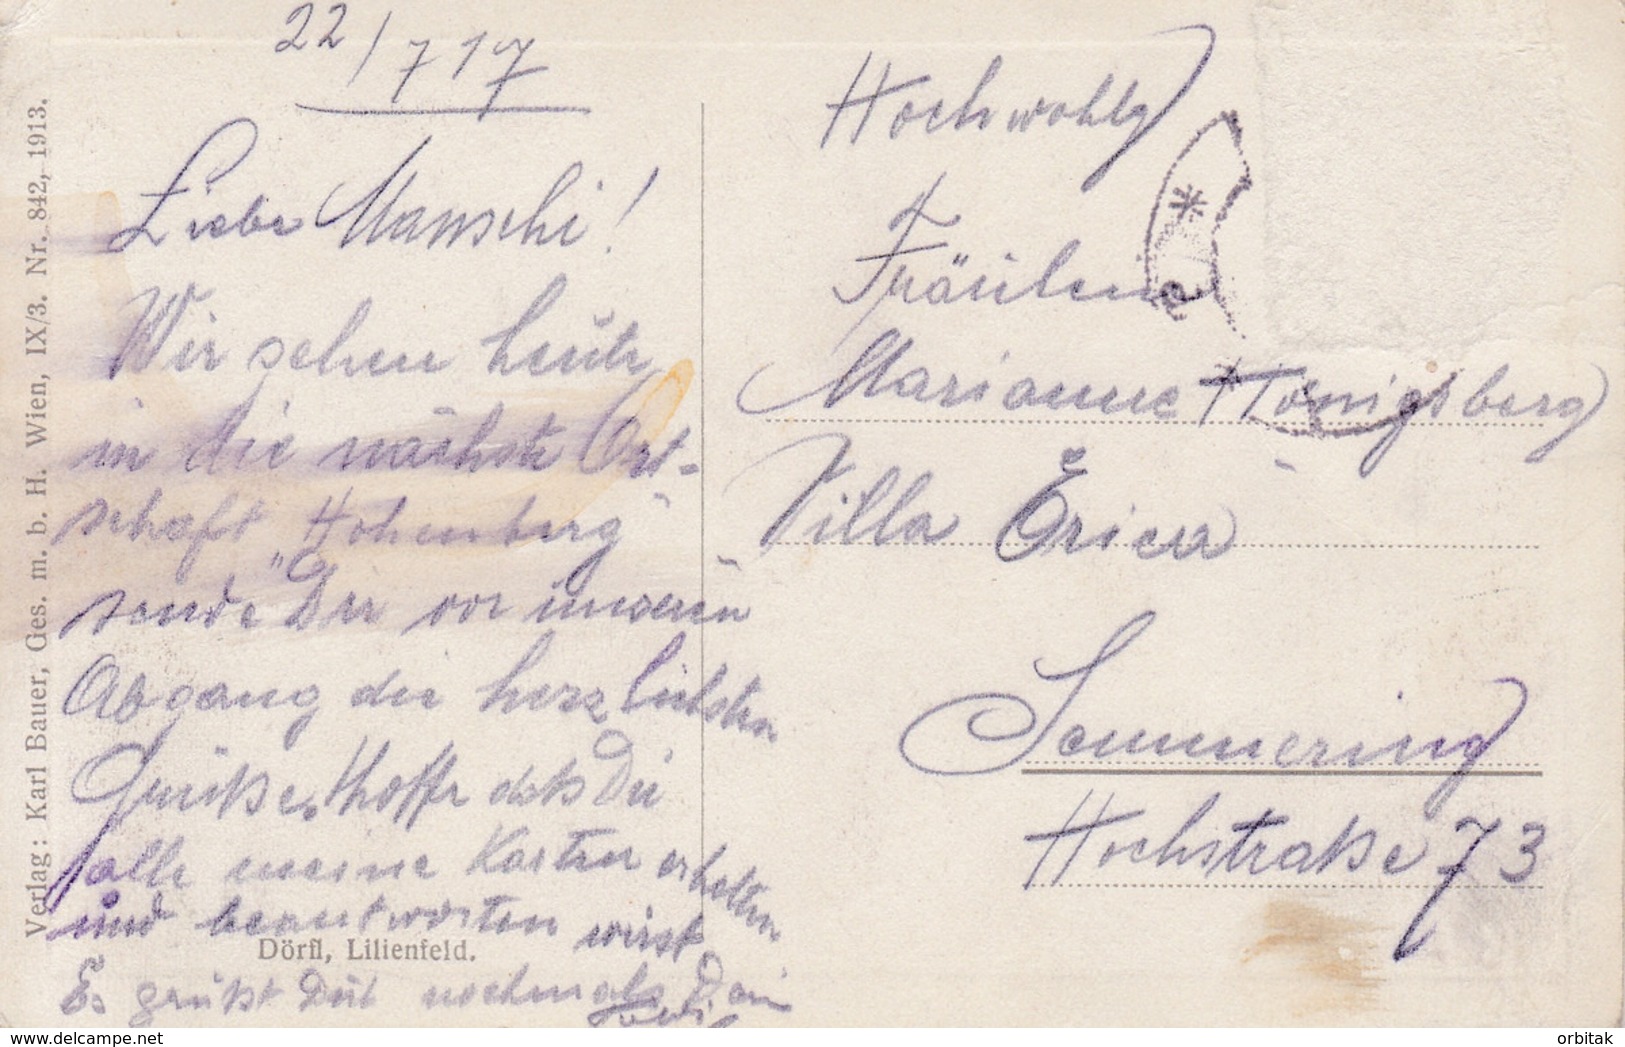 22/7 17
Liebe Manschi!
Wir gehen heute
in die nächste Ort-
schaft "Hohenberg"
sende Dir vor unseren
Abgang die herzlichsten
Grüße. Hoffe daß Du
alle meine Karten erhalten
und beantworten wirst
Es grüßt Dich nochmals Dein
Dörfl, Lilienfeld.
Verlag: Karl Bauer, Ges. m. b. H. Wien, IX/3. Nr. 842, 1913.
Hochwohlg
Fräulein
Marianne Königsberg
Villa Erica
Semmering
Hochstraße 73
orbitak
delcampe.net